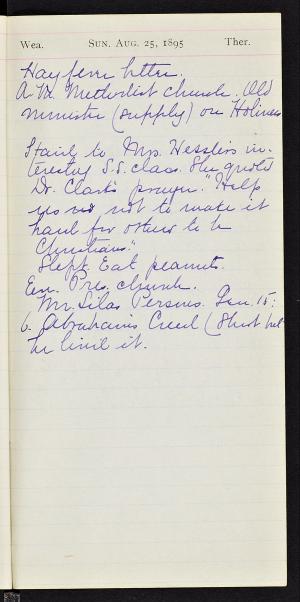 Wea. SUN. AUG. 25, 1895 Ther.
Hay fever better.
A.M. Methodist church. Old
minister (supply) on Holiness
Staid to Mrs. Wessler's in-
teresting S.S. class. She quoted
Dr. Clark's prayer. "Help
us not to make it
hard for others to be
Christians."
Slept. Eat peanuts.
Eve. Pres. church.
Mr. Silas Persons. Gen. 15:
6. Abraham's Creed (Short but
he lived it.